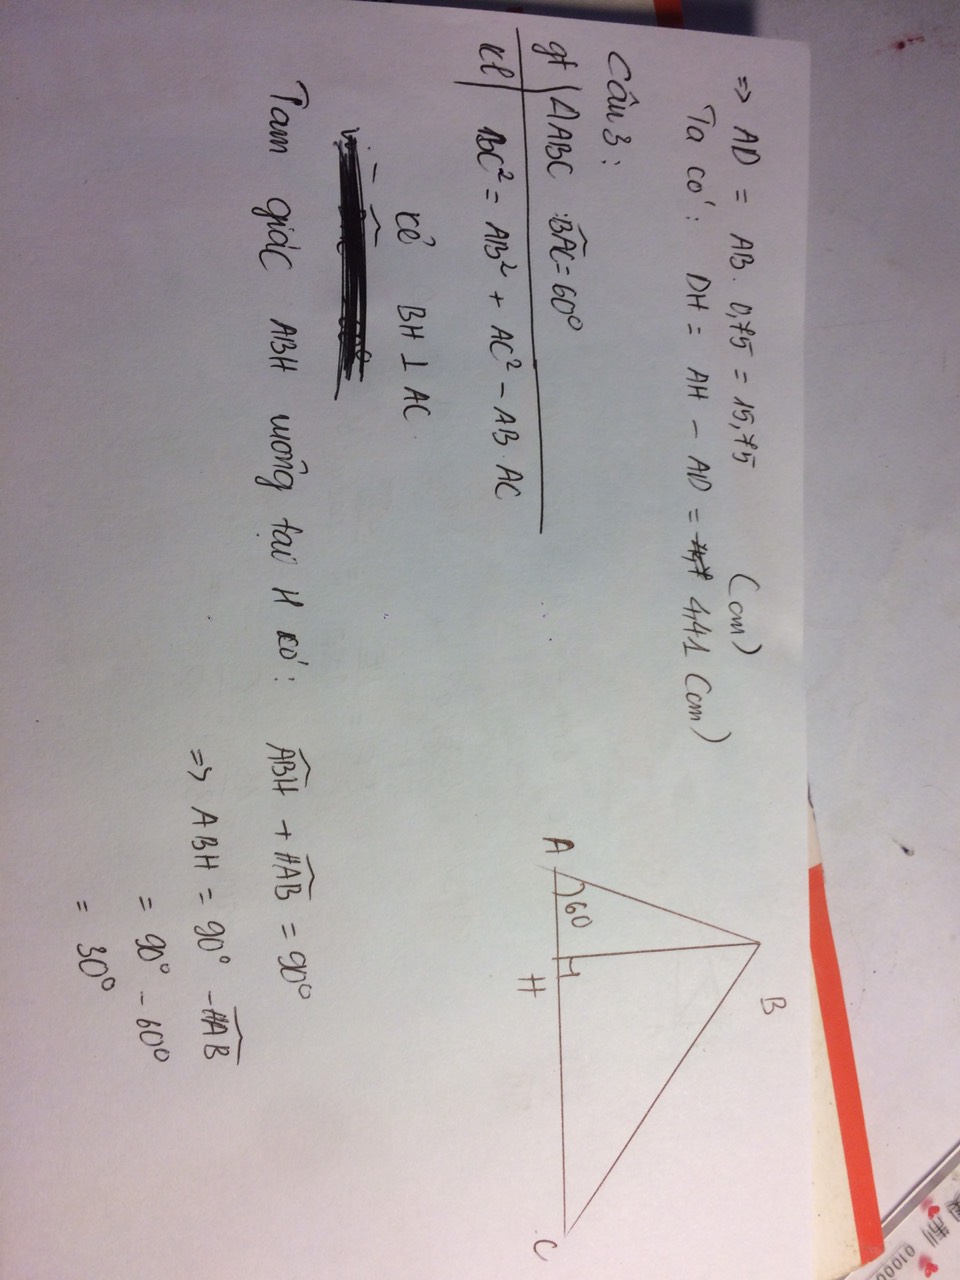 => AD = AB. 0,75 = 15,75 (cm)
Ta có: DH = AH - AD = 4,41 (cm)
Câu 3:
gt | ΔABC : BAC = 60°
kl | BC² = AB² + AC² - AB . AC
Kẻ BH ⊥ AC
Tam giác ABH vuông tại H có: ABH + HAB = 90°
=> ABH = 90° - HAB
= 90° - 60°
= 30°
B
A
60
H
C